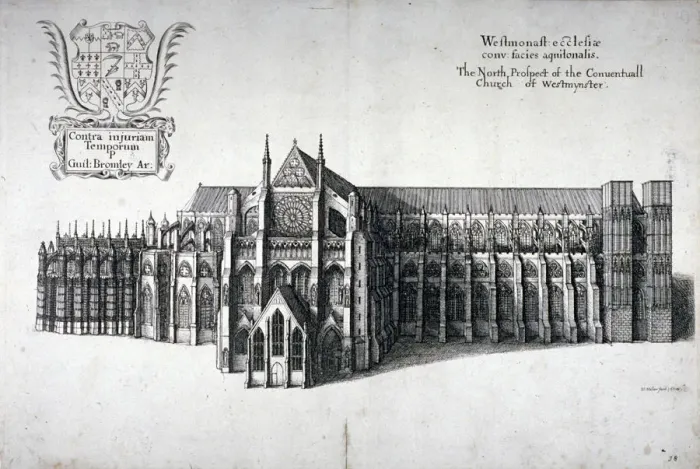 Contra injuriam
Temporum
P
Guil: Bromley Ar:
Westmonast: ecclesiæ
conv: facies aquilonalis.
The North Prospect of the Conventuall
Church of Westmynster.